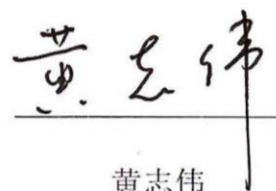 黄志伟
黄志伟